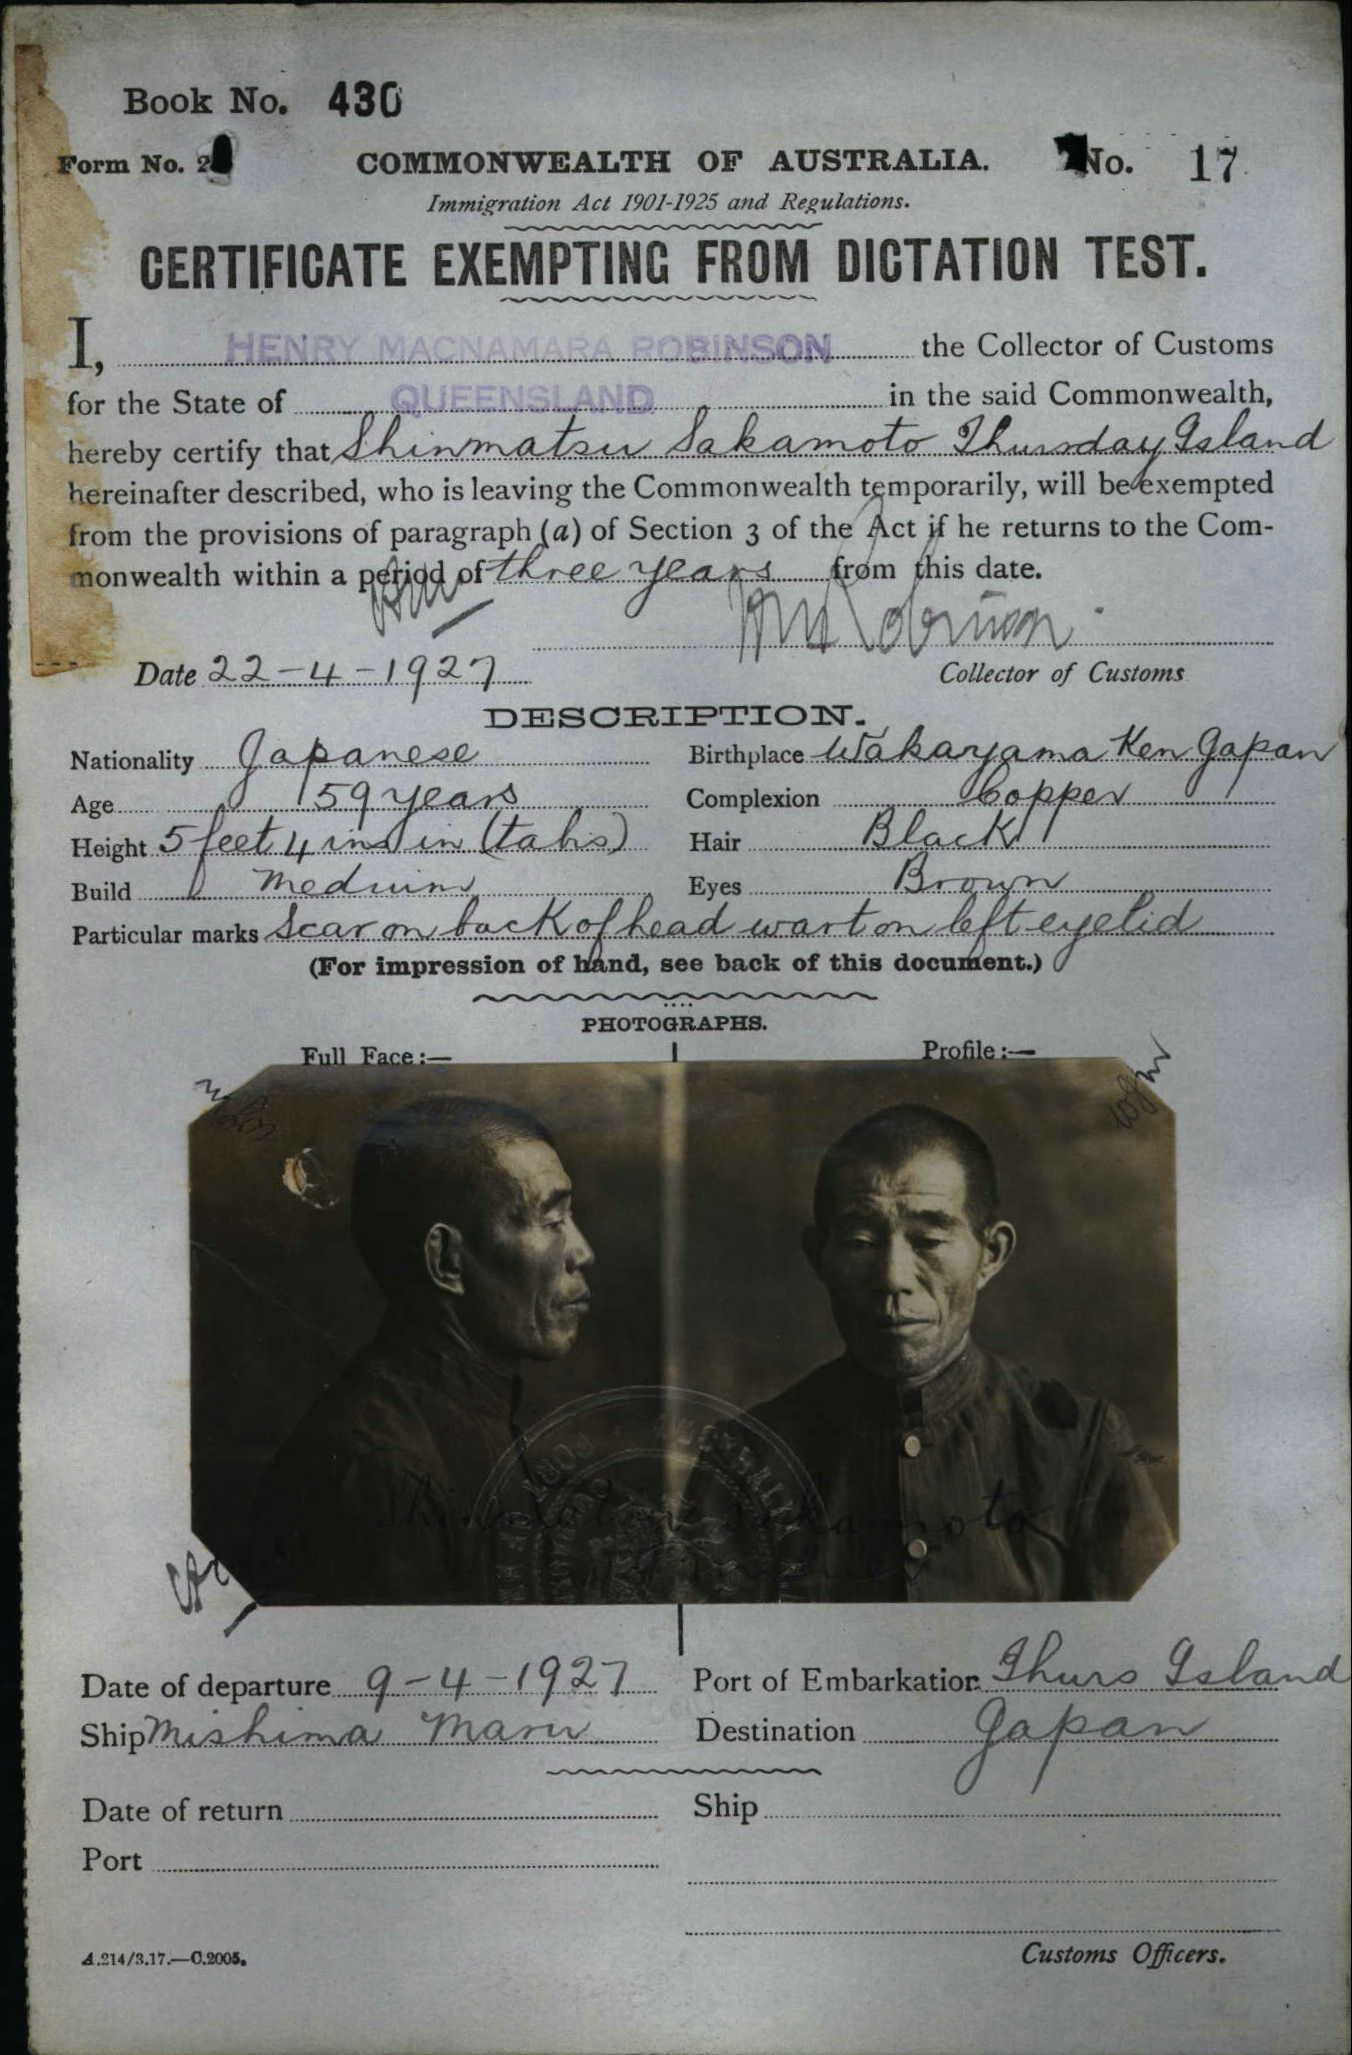 Book No. 430
Form No. 2
COMMONWEALTH OF AUSTRALIA.
No. 17
Immigration Act 1901-1925 and Regulations.
CERTIFICATE EXEMPTING FROM DICTATION TEST.
I, HENRY MACNAMARA ROBINSON the Collector of Customs
for the State of QUEENSLAND in the said Commonwealth,
hereby certify that Shinmatsu Sakamoto Thursday Island
hereinafter described, who is leaving the Commonwealth temporarily, will be exempted
from the provisions of paragraph (a) of Section 3 of the Act if he returns to the Com-
monwealth within a period of three years from this date.
HMRobinson
Date 22-4-1927
Collector of Customs
DESCRIPTION.
Nationality Japanese
Birthplace Wakayama Ken Japan
Age 59 years
Complexion Copper
Height 5 feet 4 ins in (tabis)
Hair Black
Build Medium
Eyes Brown
Particular marks Scar on back of head wart on left eyelid
(For impression of hand, see back of this document.)
PHOTOGRAPHS.
Full Face:—
Profile:—
Sakamoto
Date of departure 9-4-1927
Port of Embarkation Thurs Island
Ship Mishima Maru
Destination Japan
Date of return
Ship
Port
A.214/3.17.—C.2005.
Customs Officers.